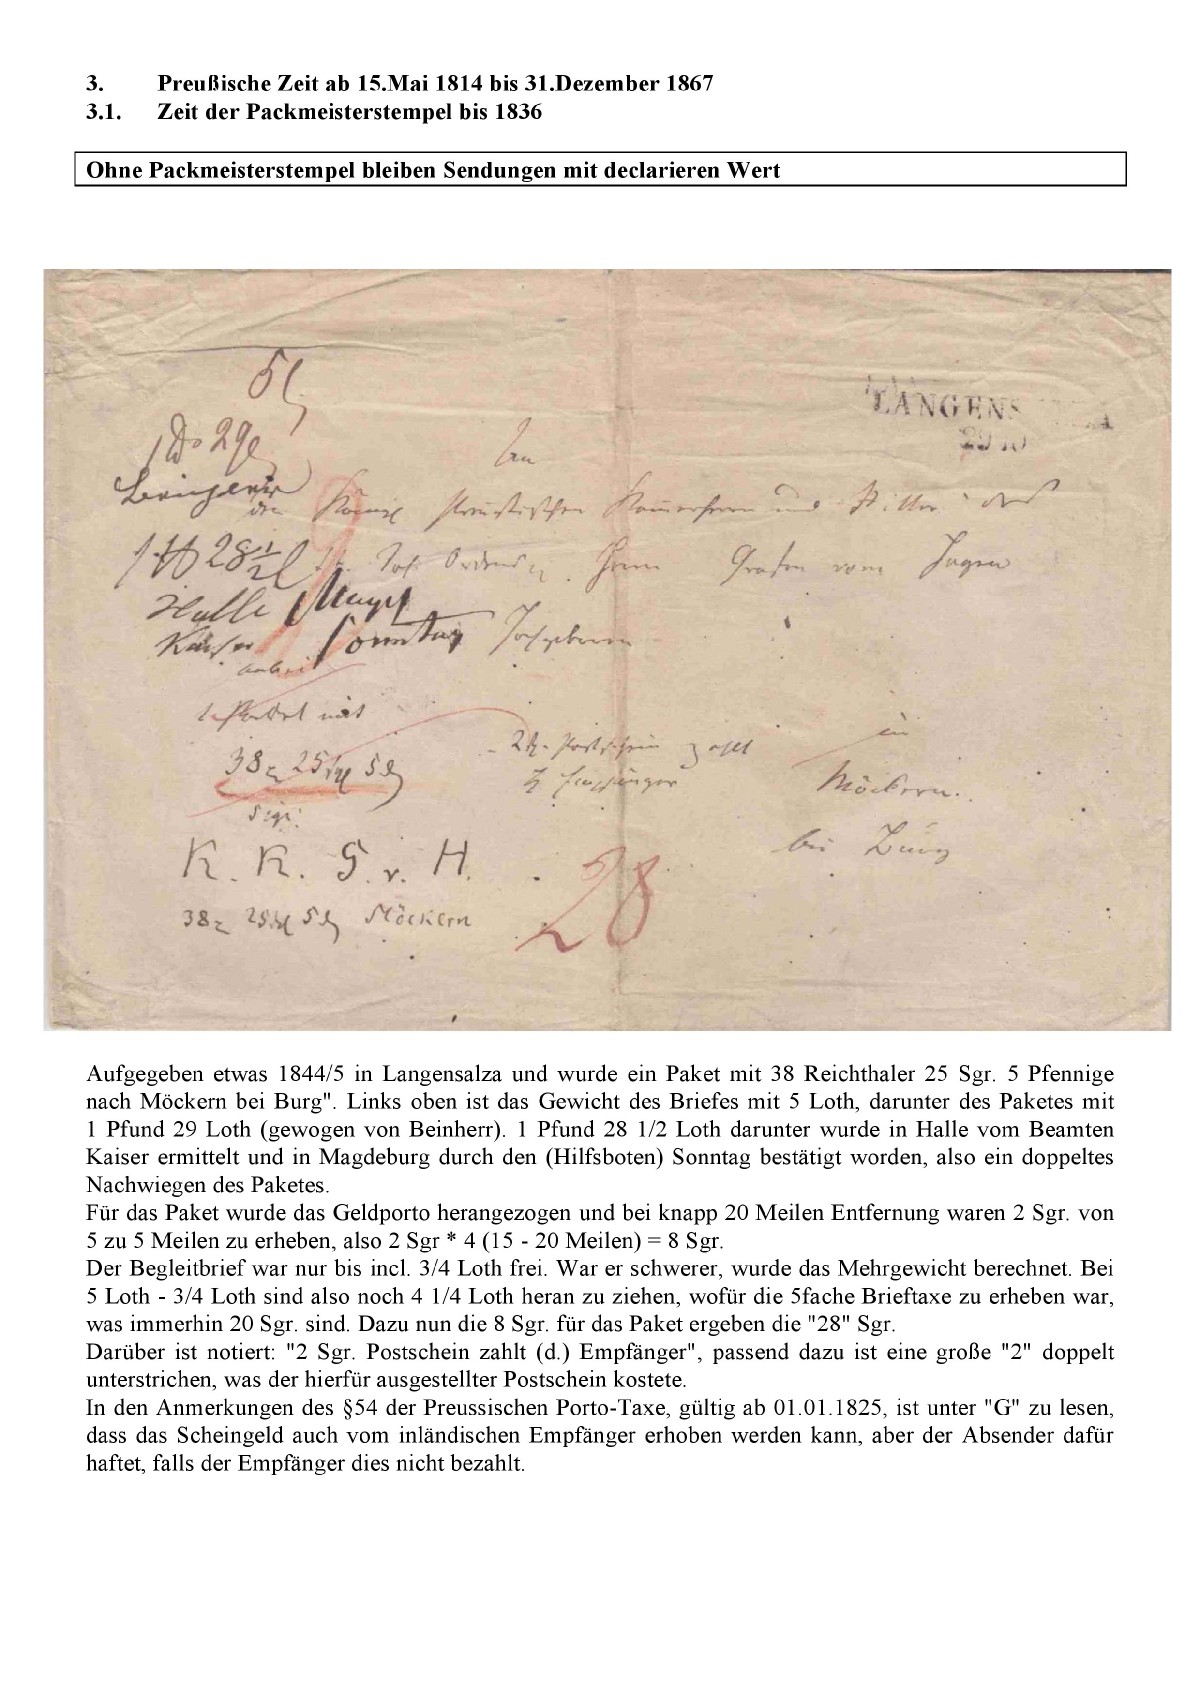 3. Preußische Zeit ab 15.Mai 1814 bis 31.Dezember 1867
3.1. Zeit der Packmeisterstempel bis 1836
Ohne Packmeisterstempel bleiben Sendungen mit declarieren Wert
5 L
LANGENS
An
1 29
den Königl Preußischen Kammerherrn und Ritter des
28 1/2 L Herrn Grafen vom Hagen
Halle Magd
Kaiser Sonntag Hochgeboren
anbei
1 Packet mit
in
38 25 5 2 Postschein zahlt
Empfänger Möckern.
Sign:
bei Burg
K. K. G. v. H.
28
38 25 5 Möckern
Aufgegeben etwas 1844/5 in Langensalza und wurde ein Paket mit 38 Reichthaler 25 Sgr. 5 Pfennige
nach Möckern bei Burg". Links oben ist das Gewicht des Briefes mit 5 Loth, darunter des Paketes mit
1 Pfund 29 Loth (gewogen von Beinherr). 1 Pfund 28 1/2 Loth darunter wurde in Halle vom Beamten
Kaiser ermittelt und in Magdeburg durch den (Hilfsboten) Sonntag bestätigt worden, also ein doppeltes
Nachwiegen des Paketes.
Für das Paket wurde das Geldporto herangezogen und bei knapp 20 Meilen Entfernung waren 2 Sgr. von
5 zu 5 Meilen zu erheben, also 2 Sgr * 4 (15 - 20 Meilen) = 8 Sgr.
Der Begleitbrief war nur bis incl. 3/4 Loth frei. War er schwerer, wurde das Mehrgewicht berechnet. Bei
5 Loth - 3/4 Loth sind also noch 4 1/4 Loth heran zu ziehen, wofür die 5fache Brieftaxe zu erheben war,
was immerhin 20 Sgr. sind. Dazu nun die 8 Sgr. für das Paket ergeben die "28" Sgr.
Darüber ist notiert: "2 Sgr. Postschein zahlt (d.) Empfänger", passend dazu ist eine große "2" doppelt
unterstrichen, was der hierfür ausgestellter Postschein kostete.
In den Anmerkungen des §54 der Preussischen Porto-Taxe, gültig ab 01.01.1825, ist unter "G" zu lesen,
dass das Scheingeld auch vom inländischen Empfänger erhoben werden kann, aber der Absender dafür
haftet, falls der Empfänger dies nicht bezahlt.